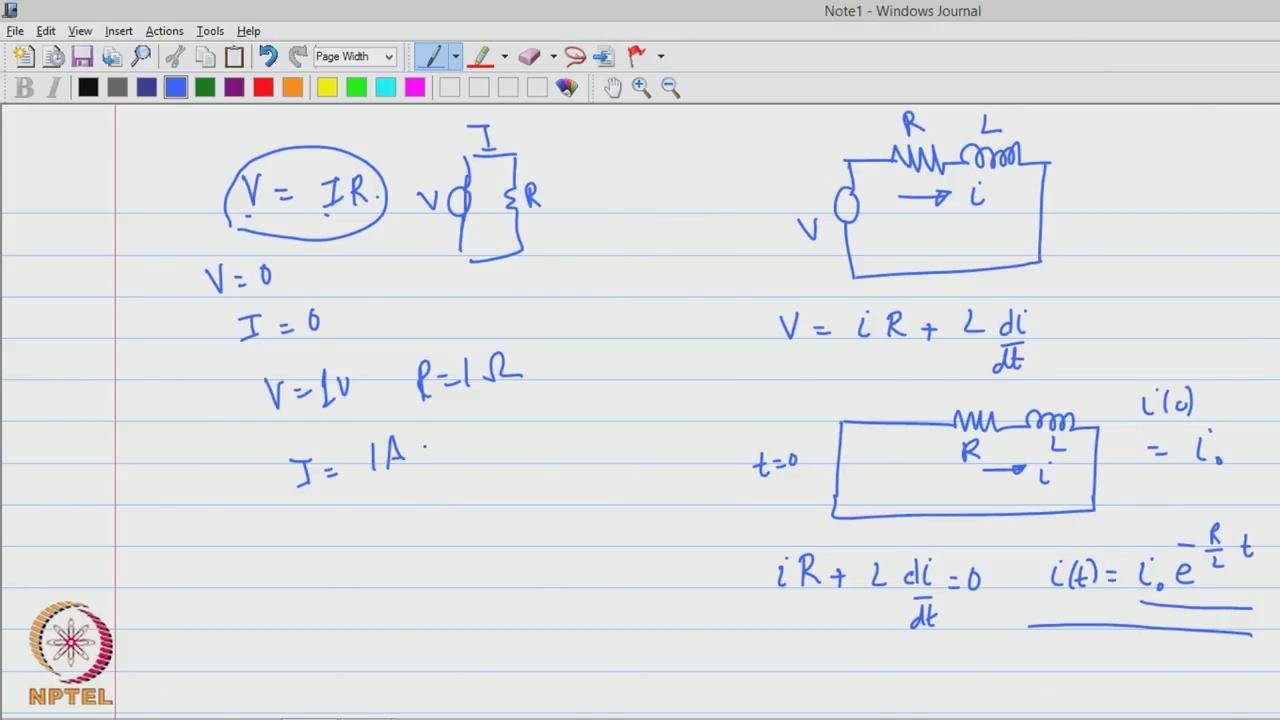 Note1 - Windows Journal
File Edit View Insert Actions Tools Help
Page Width
B I
V = IR.
I
V
R
V = 0
I = 0
V = 1V R = 1 Ω
I = 1A.
R L
i
V
V = iR + L di/dt
t=0
R L
i
i(0)
= i₀
iR + L di/dt = 0 i(t) = i₀ e^{-R/L t}
NPTEL